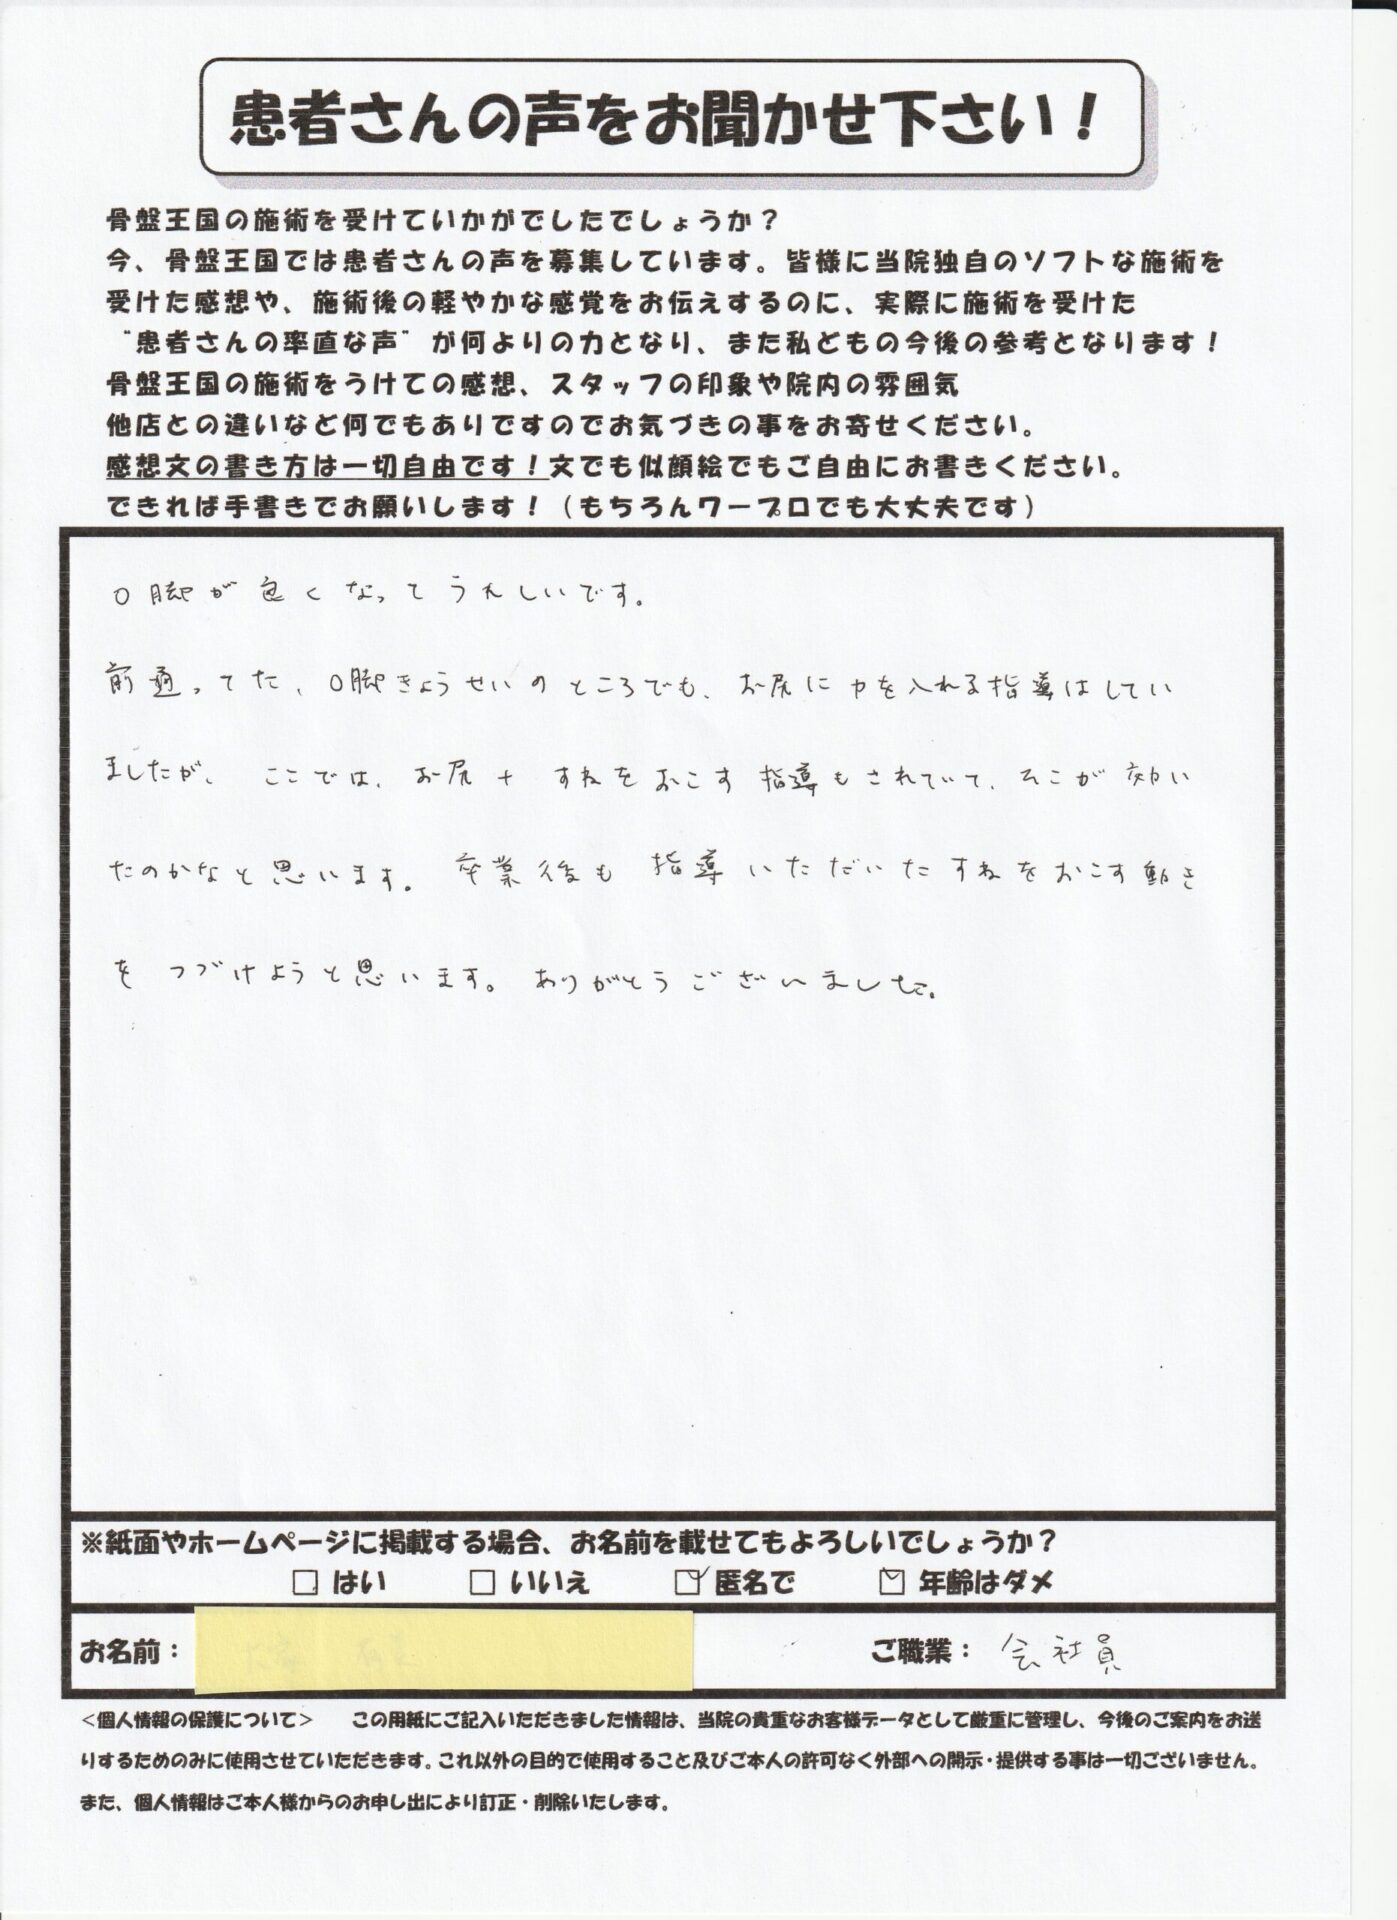 患者さんの声をお聞かせ下さい！
骨盤王国の施術を受けていかがでしたでしょうか？
今、骨盤王国では患者さんの声を募集しています。皆様に当院独自のソフトな施術を
受けた感想や、施術後の軽やかな感覚をお伝えするのに、実際に施術を受けた
“患者さんの率直な声”が何よりの力となり、また私どもの今後の参考となります！
骨盤王国の施術をうけての感想、スタッフの印象や院内の雰囲気
他店との違いなど何でもありですのでお気づきの事をお寄せください。
感想文の書き方は一切自由です！文でも似顔絵でもご自由にお書きください。
できれば手書きでお願いします！（もちろんワープロでも大丈夫です）
O脚が良くなってうれしいです。
前通ってた、O脚きょうせいのところでも、お尻に力を入れる指導はしてい
ましたが、ここでは、お尻＋すねをおこす指導もされていて、そこが効い
たのかなと思います。卒業後も指導いただいたすねをおこす動き
をつづけようと思います。ありがとうございました。
※紙面やホームページに掲載する場合、お名前を載せてもよろしいでしょうか？
□はい □いいえ ☑匿名で ☑年齢はダメ
お名前： ご職業：会社員
＜個人情報の保護について＞ この用紙にご記入いただきました情報は、当院の貴重なお客様データとして厳重に管理し、今後のご案内をお送
りするためのみに使用させていただきます。これ以外の目的で使用すること及びご本人の許可なく外部への開示・提供する事は一切ございません。
また、個人情報はご本人様からのお申し出により訂正・削除いたします。